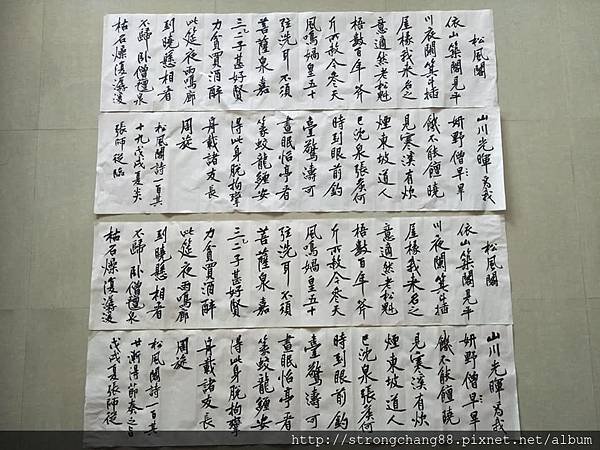 松風閣
依山築閣見平
川夜闌箕斗插
屋椽我來名之
意適然老松魁
梧數百年斧
斤所赦今參天
風鳴媧皇五十
弦洗耳不須
菩薩泉嘉
二三子甚好賢
力貧買酒醉
此筵夜雨鳴廊
到曉懸相看
不歸臥僧氈泉
枯石燥復潺湲
山川光暉為我
妍野僧早旱
饑不能饘曉
見寒溪有炊
煙東坡道人
已沈泉張侯何
時到眼前釣
臺驚濤可
晝眠怡亭看
篆蛟龍纏安
得此身脫拘攣
舟載諸友長
周旋
松風閣詩一百其
十九戊戌夏炎
張師從臨
松風閣
依山築閣見平
川夜闌箕斗插
屋椽我來名之
意適然老松魁
梧數百年斧
斤所赦今參天
風鳴媧皇五十
弦洗耳不須
菩薩泉嘉
二三子甚好賢
力貧買酒醉
此筵夜雨鳴廊
到曉懸相看
不歸臥僧氈泉
枯石燥復潺湲
山川光暉為我
妍野僧早旱
饑不能饘曉
見寒溪有炊
煙東坡道人
已沈泉張侯何
時到眼前釣
臺驚濤可
晝眠怡亭看
篆蛟龍纏安
得此身脫拘攣
舟載諸友長
周旋
松風閣詩一百其
廿漸得節奏之旨
戊戌夏張師從
http://strongchang88.pixnet.net/album